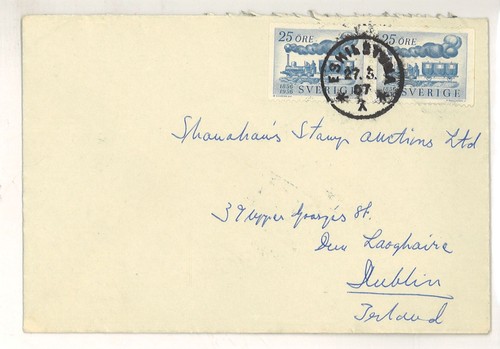 25 ÖRE 25 ÖRE
1856 1956 SVERIGE 1856 1956 SVERIGE
ESKILSTUNA
27. 5.
57
X
Shanahan's Stamp auctions Ltd
39 upper Georges St.
Dun Laoghaire
Dublin
Ireland